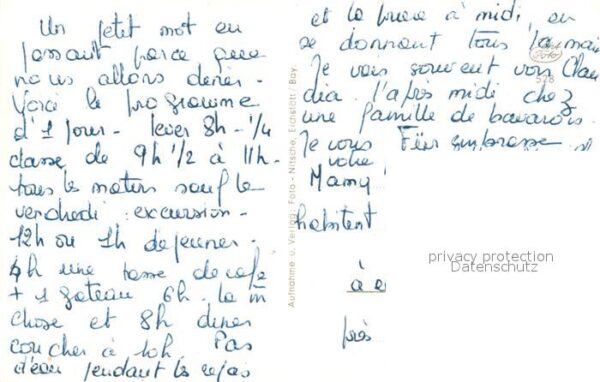 Un petit mot en
passant parce que
nous allons diner.
Voici le programme
d'1 jour - lever 8h - 1/4
classe de 9h 1/2 à 11h -
tous les matins sauf le
vendredi : excursion -
12h ou 1h dejeuner -
4h une tasse de café
+ 1 gateau 6h. la m
chose et 8h diner
coucher à 10h. Pas
d'eau pendant les repas
Aufnahme u. Verlag: Foto - Nitsche, Eichstätt / Bay.
et la prière à midi, en
se donnant tous la main
Je vais souvent voir Clau
dia. l'après midi chez
une famille de bavarois.
Je vous embrasse
votre
Mamy
habitent
à
près
Foto
528
privacy protection
Datenschutz